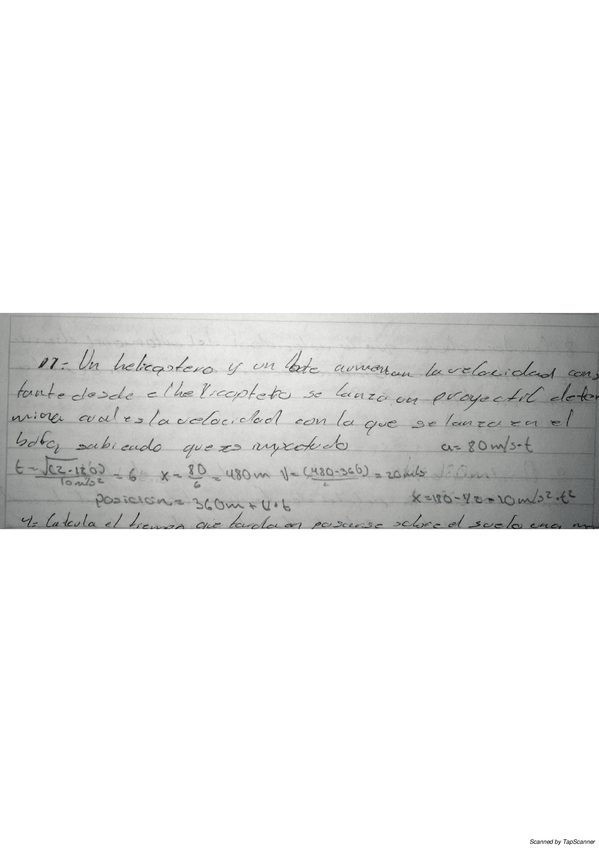 17.- Un helicoptero y un bote aumentan la velocidad cons
tante desde el helicoptero se lanza un proyectil deter
mina cual es la velocidad con la que se lanza en el
bote, sabiendo que es impactado a = 80 m/s·t
t = √(2·180) / 10m/s² = 6 x = 80/6 = 480m V = (480-360)/6 = 20m/s
posicion = 360m + V·t x = 180 - 40 = 10m/s²·t²
4= Calcula el tiempo que tarda en posarse sobre el suelo una
Scanned by TapScanner